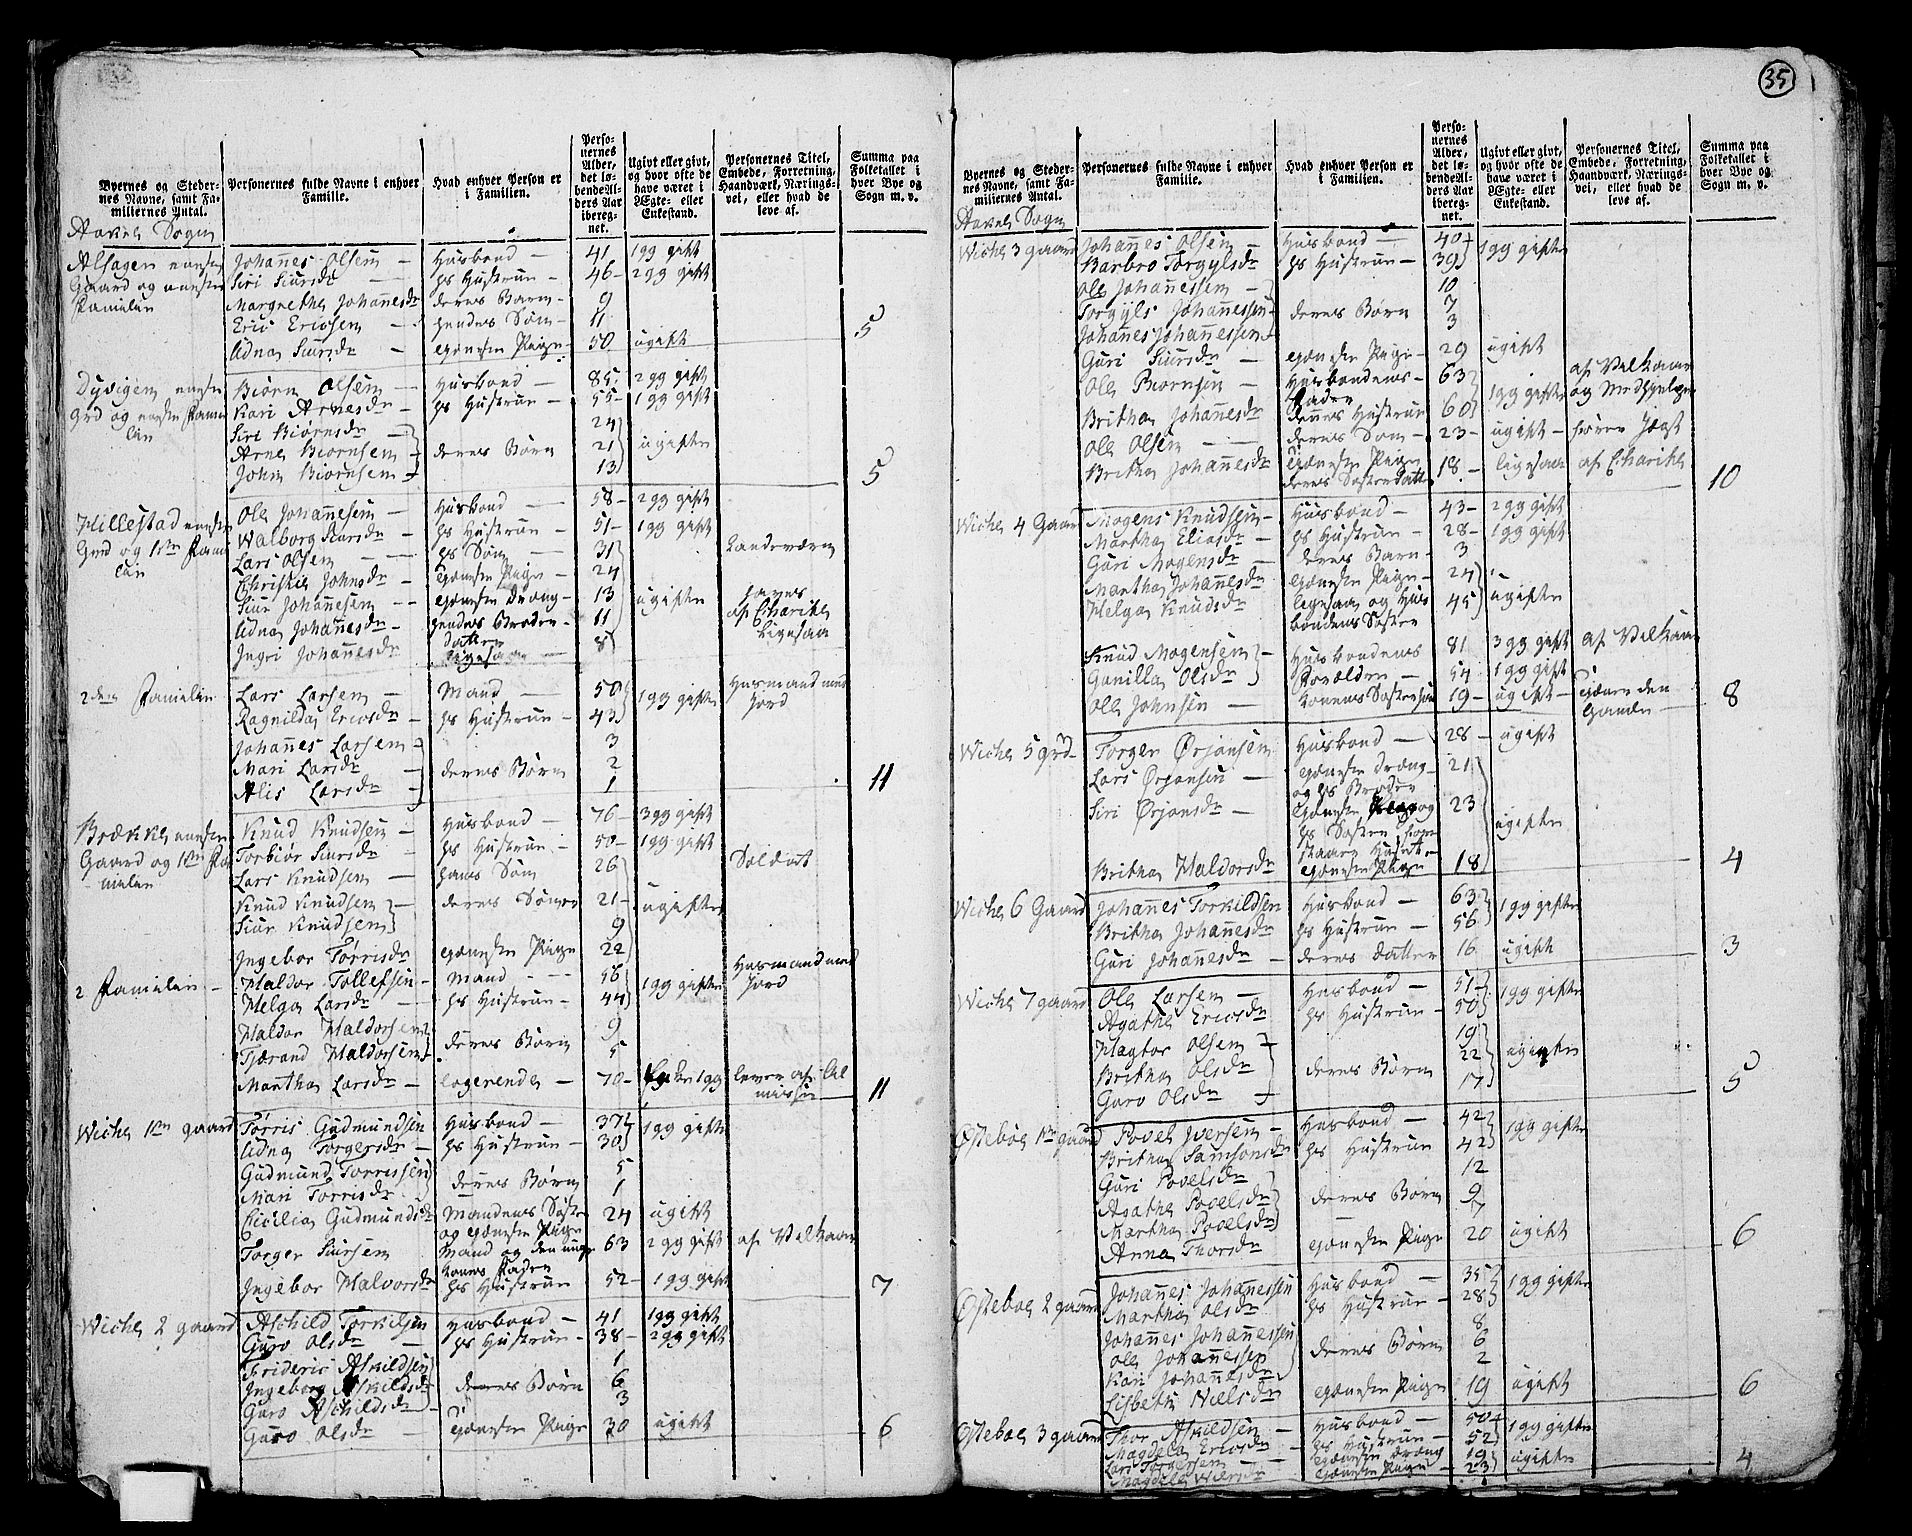 35
Byernes og Steder-
nes Navne, samt Fa-
miliernes Antal.
Personernes fulde Navne i enhver
Familie.
Hvad enhver Person er
i Familien.
Perso-
nernes
Alder,
det lø-
bende Al-
ders Aar
ibereg-
net.
Ugivt eller givt,
og hvor ofte de
have været i
Ægte- eller
Enkestand.
Personernes Titel,
Embede, Forretning,
Haandværk, Nærings-
vei, eller hvad de
leve af.
Summa paa
Folketallet i
hver Bye og
Sogn m. v.
Sogn
Gaard og
Familie
Johañes Olsen — Husbond — 41 1gg gift
Siri Siursdr — hs Hustrue — 46 2gg gift
Margrethe Johañesdr deres Barn 9
Eric Ericsen — hendes Søn — 11 5
Adna Siursdr — tjeneste Pige 50 ugift
Dyvigen
Grd og
Biørn Olsen — Husbond — 85 2gg gift
Kari Arnesdr — hs Hustrue — 55 1gg gift
Siri Biørnsdr 24
Arne Biørnsen deres Børn 21 ugifte
John Biørnsen 13 5
Hillestad
Grd og 1ste
Ole Johañesen — Husbond — 58 2gg gift
Walborg Siursdr hs Hustrue — 51 1gg gift
Lars Olsen — hs Søn — 31 Landeværn
Christie Johnsdr tjeneste Pige — 24
Siur Johañesen — tjeneste Dreng 13 ugifte
Adna Johañesdr hendes Broder- 11 af
datter ligesaa
Ingri Johañesdr ligesaa — 8
2den Familie
Lars Larsen — Mand — 50 1gg gifte Husmand med
Jord
Ragnilda Ericsdr hs Hustrue — 43
Johañes Larsen 3
Mari Larsdr deres Børn 2
Alis Larsdr 1 11
Brække
Gaard og 1ste Fa-
milie
Knud Knudsen — Husbond — 76 3gg gift
Torbiør Siursdr hs Hustrue — 50 1gg gift
Lars Knudsen — hans Søn 26 Soldat
Knud Knudsen deres Sønner 21 ugifte
Siur Knudsen 9
Ingebor Tørrisdr tjeneste Pige 22
2 Familie
Haldor Tollefsen Mand — 56 1gg gifte Husmand med
Jord
Helga Larsdr — hs Hustrue — 44
Haldor Haldorsen deres Børn 9
Tjærand Haldorsen 5
Martha Larsdr — logerende — 70 1gg lever af Al-
misse 11
Wiche 1ste gaard
Tørris Gudmundsen Husbond — 37 1gg gifte
Adna Torgersdr hs Hustrue — 30
Gudmund Torrissen deres Børn 5
Mari Torrisdr 1
Cicilia Gudmundsdr Mandens Søster 24 ugift
og tjeneste Pige
Torger Siursen Mand og den unge 63 2gg gift af Velkaar
Kones Fader
Ingebor Halvorsdr hs Hustrue 52 1gg gift 7
Wiche 2 gaard
Aschild Torkilsen Husbond — 41 1gg gift
Guro Olsdr — hs Hustrue — 38 2gg gift
Frideric Askildsen 1
Ingeborg Askildsdr deres Børn 6
Guro Aschildsdr 3
Guro Olsdr — tjeneste Pige 30 ugift 6
Byernes og Steder-
nes Navne, samt Fa-
miliernes Antal.
Personernes fulde Navne i enhver
Familie.
Hvad enhver Person er
i Familien.
Perso-
nernes
Alder,
det lø-
bende Al-
ders Aar
ibereg-
net.
Ugivt eller givt,
og hvor ofte de
have været i
Ægte- eller
Enkestand.
Personernes Titel,
Embede, Forretning,
Haandværk, Nærings-
vei, eller hvad de
leve af.
Summa paa
Folketallet i
hver Bye og
Sogn m. v.
Sogn
Wiche 3 gaard
Johañes Olsen — Husbond — 40 1gg gifte
Barbro Torgylsdr hs Hustrue — 39
Ole Johañessen 10
Torgyls Johañessen deres Børn 7
Johañes Johañessen 3
Guri Siursdr — tjeneste Pige 29 ugift
Ole Biørnsen — Husbondens 63 1gg gifte af Velkaar
Fader og
Britha Johañesdr dennes Hustrue 60
Ole Olsen — deres Søn — 23 ugift fører Jægt
Britha Johañesdr tjeneste Pige 18 ligesaa af
deres Søsterdatter 10
Wiche 4 Gaard
Mogens Knudsen Husbond — 43 2gg gift
Martha Eliasdr hs Hustrue — 28 1gg gift
Guri Mogensdr deres Barn 3
Martha Johañesdr tjeneste Pige 24 ugifte
Helga Knudsdr ligesaa og Hus- 45
bondens Søster
Knud Mogensen Husbondens 81 3gg gift af Velkaar
Gunilla Olsdr Forældre — 54 1gg gift
Ole Johnsen — Konens Søstersøn 19 ugift tjener den
Gaarde 8
Wiche 5 grd
Torger Ørjansen Husbond — 28 ugift
Lars Ørjansen — tjeneste Dreng 21
og hs Broder
Siri Ørjansdr — tjeneste Pige og 23 ugifte
hs Søster
Britha Haldorsdr tjeneste Pige 18 4
Wiche 6 Gaard
Johañes Torkildsen Husbond — 63 1gg gifte
Britha Johañesdr hs Hustrue — 56
Guri Johañesdr deres Datter 16 ugift 3
Wiche 7 gaard
Ole Larsen — Husbond — 51 1gg gifte
Agathe Ericsdr hs Hustrue — 50
Olsen 19
Britha Olsdr deres Børn 22 ugifte
Guro Olsdr 17 5
Østeboe 1ste gaard
Povel Iversen — Husbond — 42 1gg gifte
Britha Samsonsdr hs Hustrue 42
Guri Povelsdr 12
Agathe Povelsdr deres Børn 9
Martha Povelsdr 7
Anna Thorsdr tjeneste Pige 20 ugift 6
Østeboe 2 gaard
Johañes Johañessen Husbond — 35 1gg gifte
Martha Olsdr hs Hustrue — 28
Johañes Johañessen 8
Ole Johañessen deres Børn 6
Kari Johañesdr 2
Lisbeth Nielsdr tjeneste Pige 19 ugift 6
Østeboe 3 gaard
Thor Askildsen — Husbond — 50 1gg gifte
Magdela Ericsdr — hs Hustrue — 52
Lars Torgersen — tjeneste Dreng 19 ugifte
tjeneste Pige 23 4